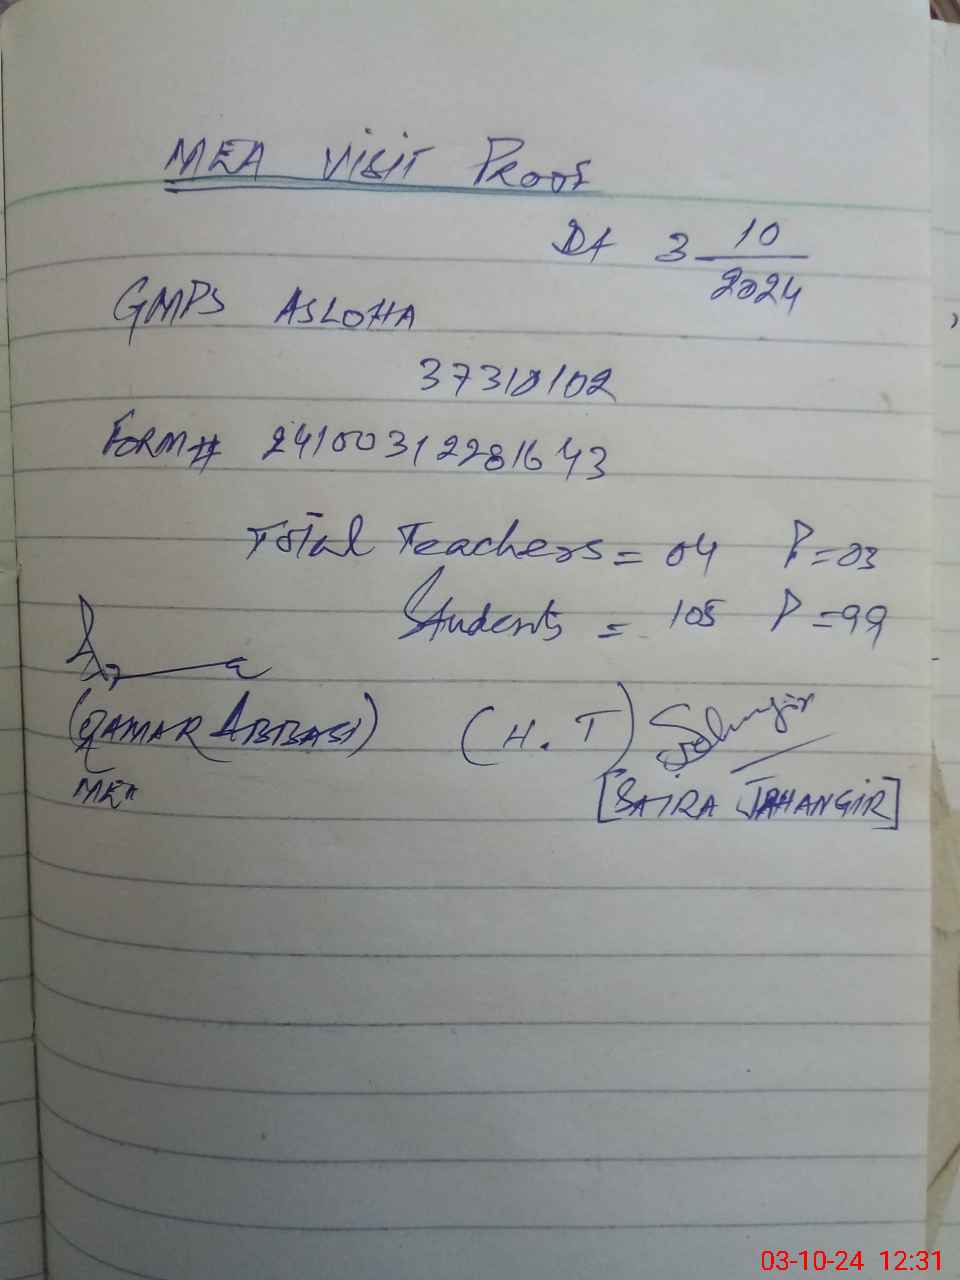 MEA VISIT PROOF
Dt 3 10/2024
GMPS ASLOHA
37310102
FORM# 241003122281643
Total Teachers = 04 P=03
Students = 105 P=99
(QAMAR ABBASI) (H.T) Jahangir
MEA [SAIRA JAHANGIR]
03-10-24 12:31